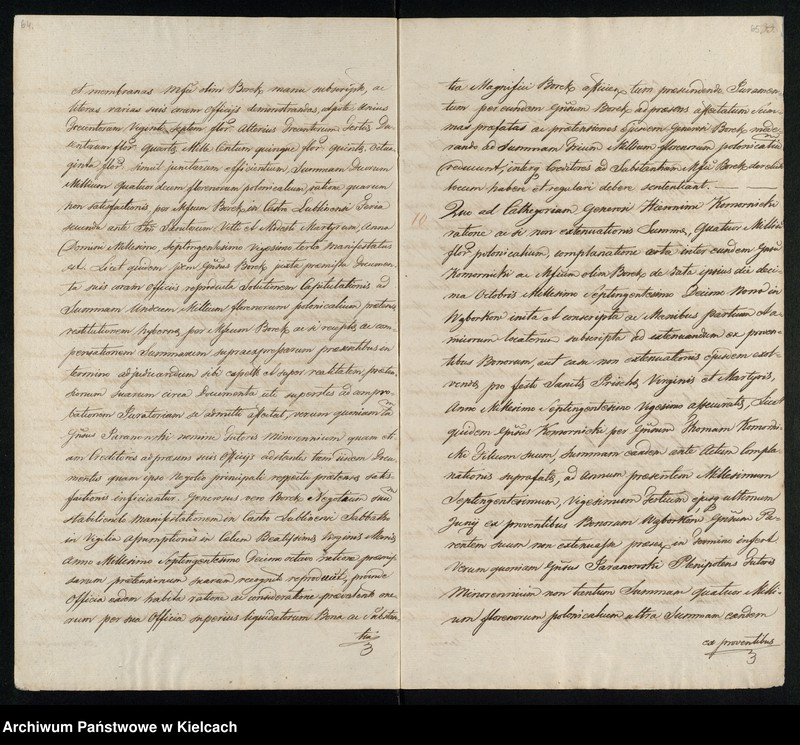 64.
et membranas Msci olim Borek manu subscriptas, ac
literas varias suis coram Officijs demonstrandas, utpote Unius
Trecentorum Viginti Septem flor. Alterius Trecentorum Tertis Du-
centorum flor. Quartis, Mille Centum quinque flor. quintis, Octua-
ginta flor. simul junctarum efficientium, Summam Duorum
Millium quatuordecim florenorum polonicalium, ratione quarum
non satisfactionis, per Msum Borek, in Castro Lublinensi Feria
secunda ante Sanctorum Viti et Modesti Martyrum, Anno
Domini Millesimo, Septingentesimo Vigesimo tertio manifestatus
est. Licet quidem idem Gsus Borek juxta præmissa Documen-
ta suis coram Officijs reproducta Solutionem Capitulationis ad
Summam Undecim Millium florenorum polonicalium prætensis
restitutionem Hybernæ, per Msum Borek, ac si receptæ, ac com-
pensationem Summarum supraexpressarum præsentibus in
termino adjudicandam sibi expetit et super realitatem, præten-
sionum suarum circa Documenta uti supportes ad compro-
bationem Juratoriam se admitti efflagitat, verum quoniam tam
Gsus Taranowski nomine Tutoris Minorennium quam eti-
am Creditores ad præsens suis Officijs adstantes tam eidem Docu-
mentis quam ipso Negotio principali respectu prætensæ satis-
factionis inficiantur. Generosus vero Borek Negotium suum
stabiliendo manifestationem in Castro Lublinensi Sabbatho
in Vigilia Assumptionis in Cælum Beatissimæ Virginis Mariæ
Anno Millesimo Septingentesimo Decimo octavo ratione præmis-
sarum prætensionum suarum recognit reproducit, proinde
Officia eadem habita ratione ac consideratione prævertendi one-
rum per sua Officia superius liquidatorum Bona ac Substan-
tia
65.
tia Magnifici Borek afficien, tum præscindendo Juramen-
tum per eundem Gsum Borek, ad præsens affectatum Sum-
mas præfatas ac prætensiones ejusdem Generosi Borek mode-
rando ad Summam Trium Millium florenorum polonicalium
reducunt, interq Creditores ad Substantiam Msci Borek
locum habere et regulari debere sententiant.
10
Quo ad Cathegoriam Generosi Hieronimi Komornicki
ratione ac si non extenuationis Summæ, Quatuor Millium
flor. polonicalium, complanatione certa inter eundem Gsum
Komornicki ac Msum olim Borek, de data ipsius die deci-
ma Octobris Millesimo Septingentesimo Decimo Nono in
Wyborkow inita et conscripta ac Manibus partium et a-
micorum locatorum subscripta ad extenuandum ex proven-
tibus Bonorum, aut casu non extenuationis ejusdem exol-
vendæ, pro festo Sanctæ Priscæ, Virginis et Martyris,
Anno Millesimo Septingentesimo Vigesimo assecuratæ, Licet
quidem Gsus Komornicki per Gsum Thomam Komornic-
ki Filium suum, Summam eandem ante Actum Compla-
nationis suprafatæ, ad Annum præsentem Millesimum
Septingentesimum, Vigesimum Tertium ejusq ultimum
Junij ex proventibus Bonorum Wyborkow Gsum Pa-
rentem suum non extenuasse præses, in Termino infert.
Verum quoniam Gsus Taranowski Plenipotens Tutoris
Minorennium non tantum Summam quatuor Milli-
um florenorum polonicalium ultra Summam eandem
ex proventibus
Archiwum Państwowe w Kielcach